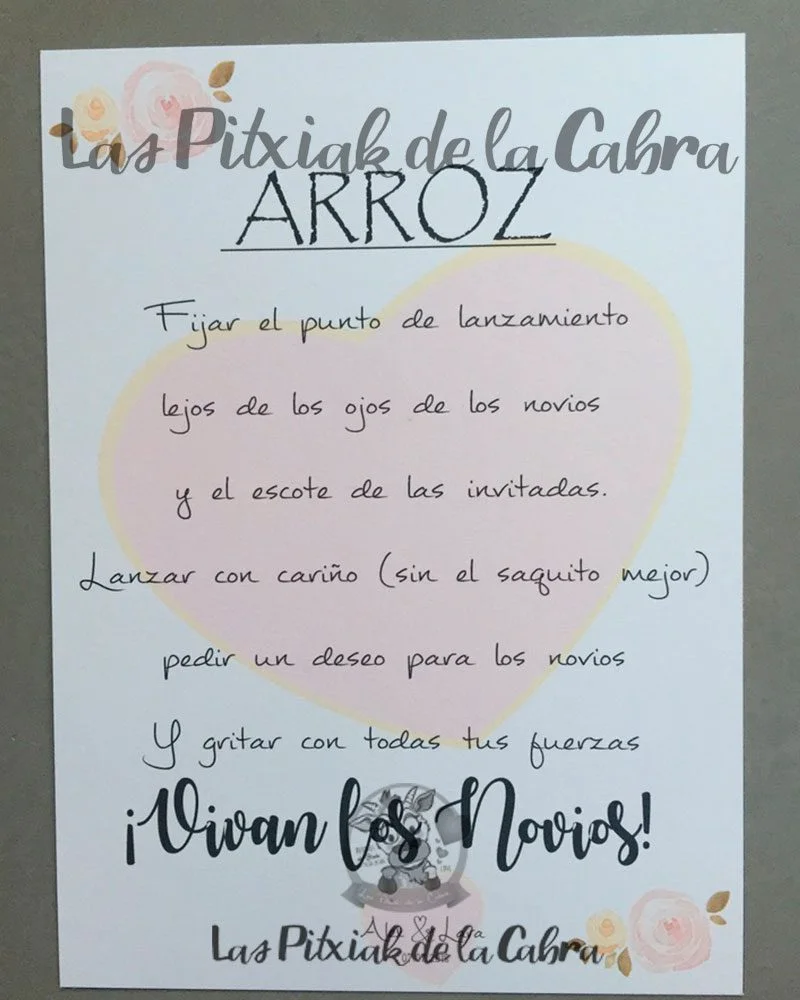 Las Pitxiak de la Cabra
ARROZ
Fijar el punto de lanzamiento
lejos de los ojos de los novios
y el escote de las invitadas.
Lanzar con cariño (sin el saquito mejor)
pedir un deseo para los novios
Y gritar con todas tus fuerzas
¡Vivan los Novios!
Las Pitxiak de la Cabra